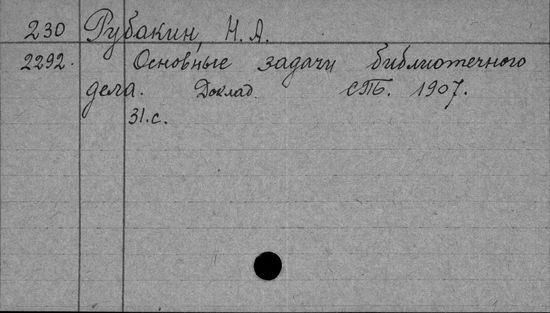 230 Рубакин, Н. А.
2292. Основные задачи библиотечного
дела. Доклад СПБ. 1907.
31.с.